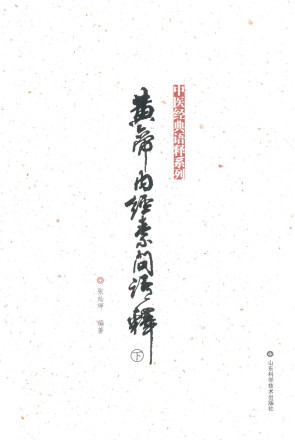 中医经典语释系列
黄帝内经素问语释
下
张灿玾 编著
山东科学技术出版社